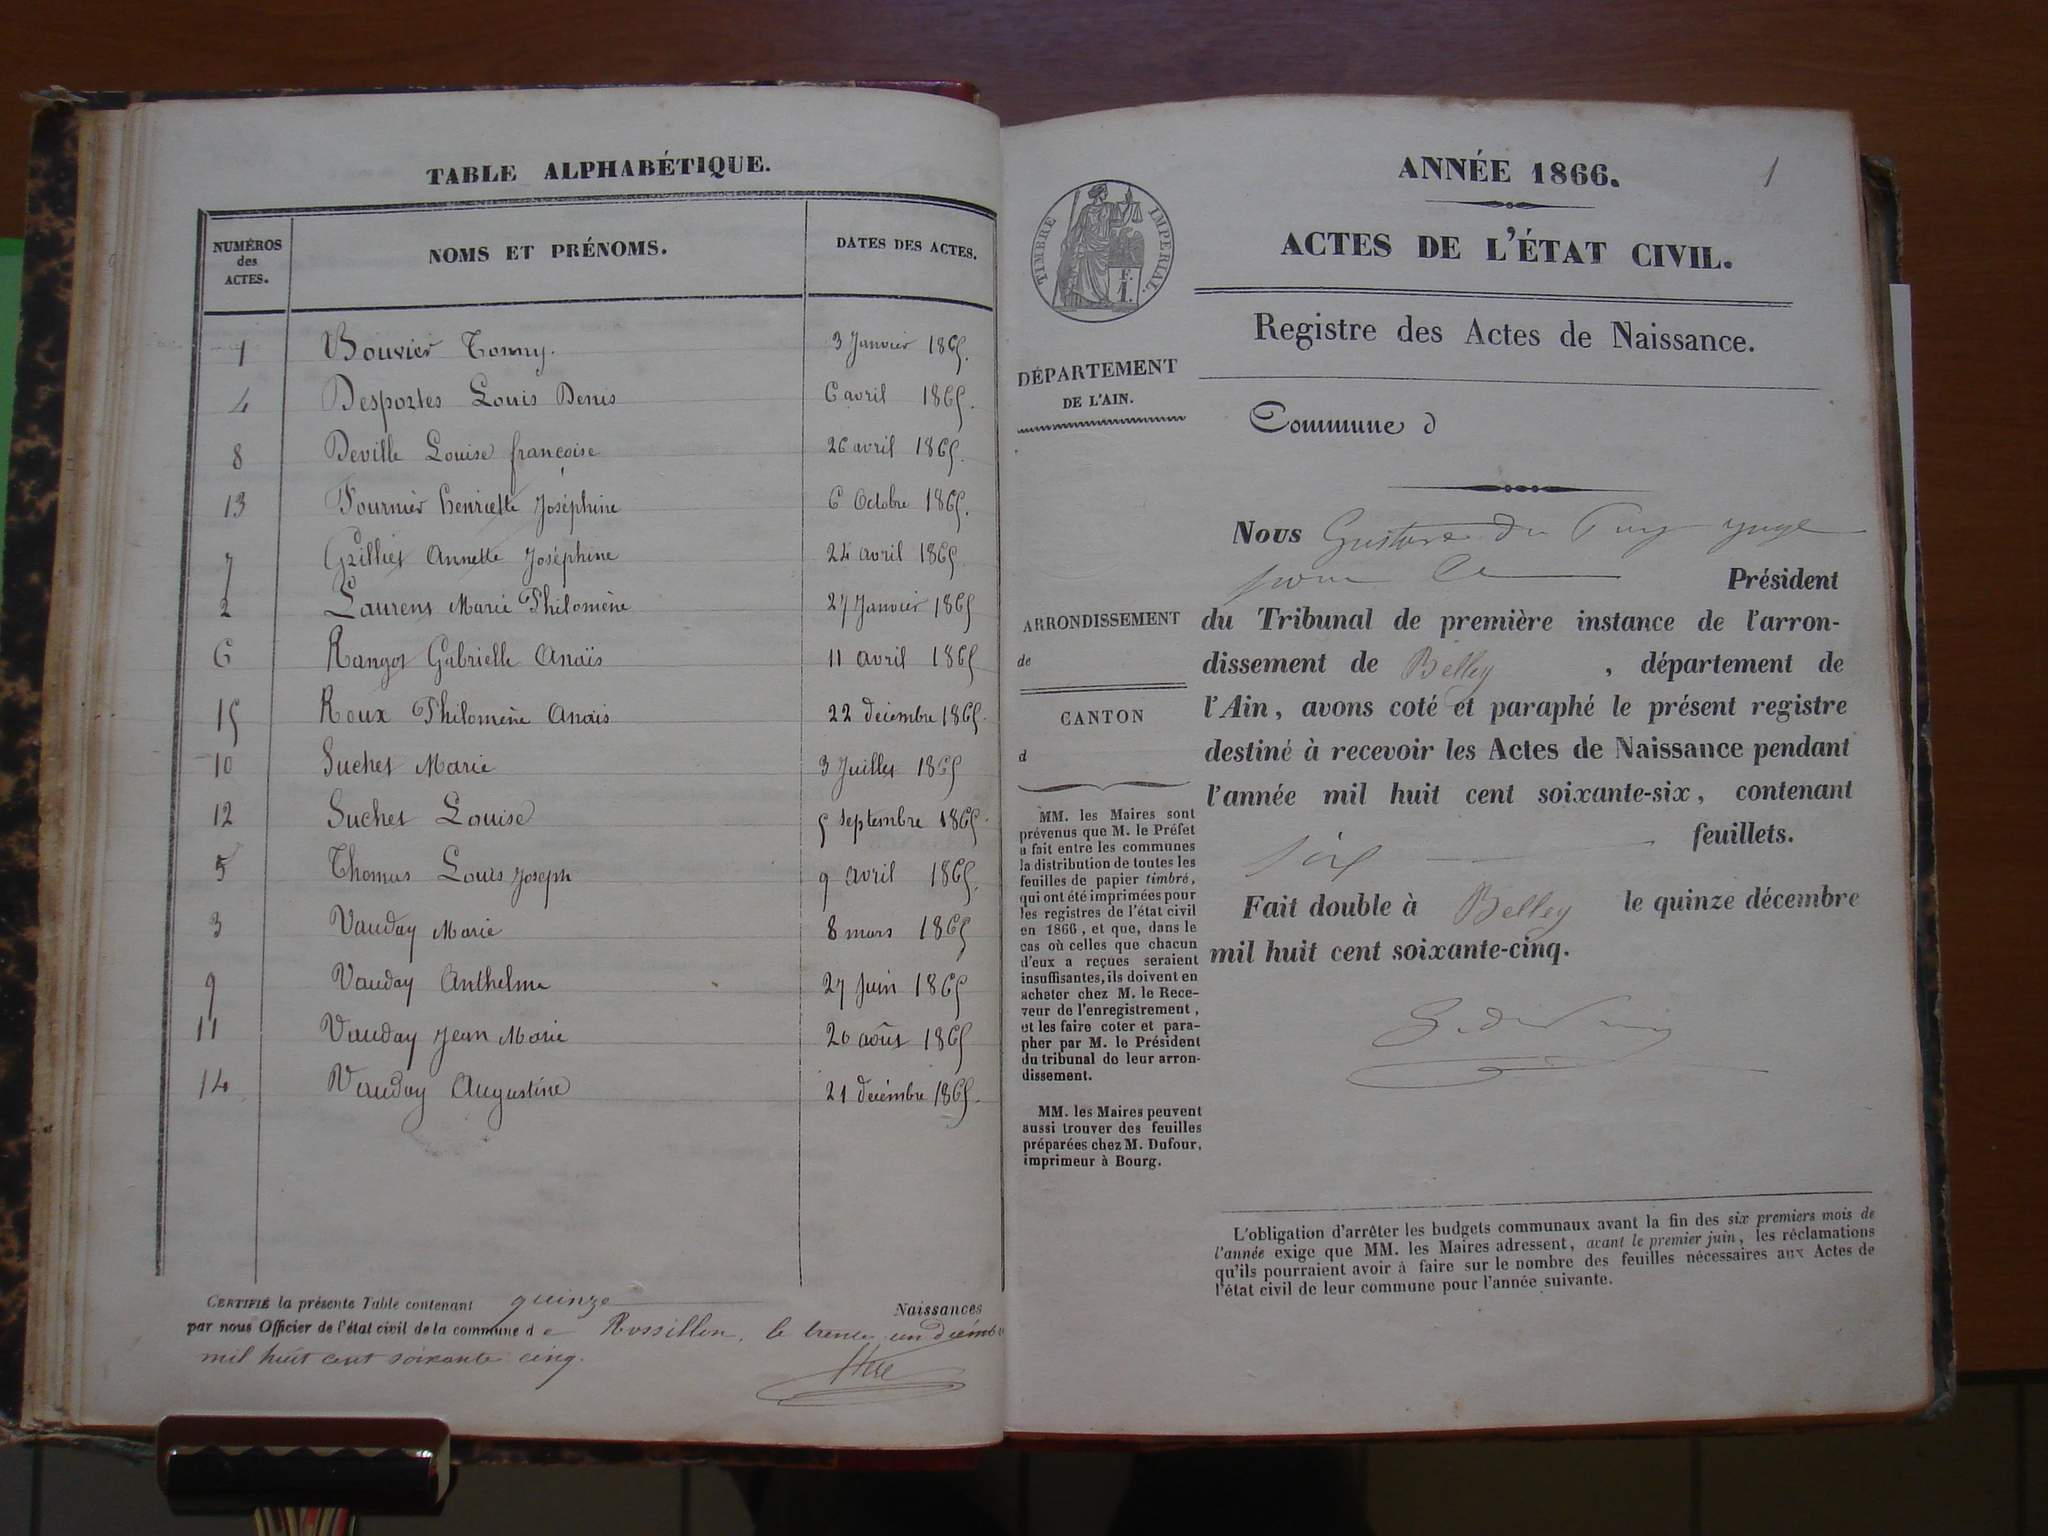 TABLE ALPHABÉTIQUE.
NUMÉROS des ACTES.
NOMS ET PRÉNOMS.
DATES DES ACTES.
1 Bouvier Tonny. 3 Janvier 1865.
4 Desportes Louis Denis 6 avril 1865.
8 Deville Louise françoise 26 avril 1865.
13 Fournier henriette Joséphine 6 Octobre 1865.
7 Grilliet Annette Joséphine 24 avril 1865
2 Laurens Marie Philomène 27 Janvier 1865
6 Rangot Gabrielle Anaïs 11 avril 1865
15 Roux Philomène Anaïs 22 décembre 1865.
10 Suchet Marie 3 Juillet 1865
12 Suchet Louise 5 septembre 1865.
5 Thomas Louis Joseph 9 avril 1865.
3 Vauday Marie 8 mars 1865
9 Vauday Anthelme 27 Juin 1865
11 Vauday Jean Marie 20 août 1865
14 Vauday Augustine 21 décembre 1865.
CERTIFIÉ la présente Table contenant quinze Naissances
par nous Officier de l'état civil de la commune d e Rossillon, le trente un décembre
mil huit cent soixante cinq.
ANNÉE 1866.
1
ACTES DE L'ÉTAT CIVIL.
TIMBRE IMPERIAL.
Registre des Actes de Naissance.
DÉPARTEMENT
DE L'AIN.
Commune d
Nous Gustave du Puy juge
pour le Président
ARRONDISSEMENT
de
CANTON
d
du Tribunal de première instance de l'arron-
dissement de Belley , département de
l'Ain, avons coté et paraphé le présent registre
destiné à recevoir les Actes de Naissance pendant
l'année mil huit cent soixante-six, contenant
six feuillets.
Fait double à Belley le quinze décembre
mil huit cent soixante-cinq.
MM. les Maires sont
prévenus que M. le Préfet
a fait entre les communes
la distribution de toutes les
feuilles de papier timbré,
qui ont été imprimées pour
les registres de l'état civil
en 1866, et que, dans le
cas où celles que chacun
d'eux a reçues seraient
insuffisantes, ils doivent en
acheter chez M. le Rece-
veur de l'enregistrement,
et les faire coter et para-
pher par M. le Président
du tribunal de leur arron-
dissement.
MM. les Maires peuvent
aussi trouver des feuilles
préparées chez M. Dufour,
imprimeur à Bourg.
L'obligation d'arrêter les budgets communaux avant la fin des six premiers mois de
l'année exige que MM. les Maires adressent, avant le premier juin, les réclamations
qu'ils pourraient avoir à faire sur le nombre des feuilles nécessaires aux Actes de
l'état civil de leur commune pour l'année suivante.